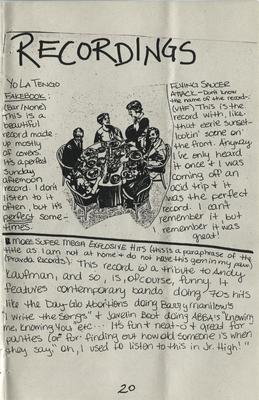 RECORDINGS
YO LA TENGO
FAKEBOOK:
(Bar/None)
This is a
beautiful
record made
up mostly
of covers.
It's a perfect
Sunday
afternoon
record. I don't
listen to it
often, but it's
perfect some-
times.
FLYING SAUCER
ATTACK - Don't know
the name of the record-
(VHF) This is the
record with, like,
that eerie sunset-
lookin' scene on
the front. Anyway,
I've only heard
it once & I was
coming off an
acid trip & it
was the perfect
record. I can't
remember it, but
I remember it was
great!
MORE SUPER MEGA EXPLOSIVE HITS (this is a paraphrase of the
title as I am not at home & do not have this gem in my paw)
(Pravda Records): This record is a tribute to Andy
Kaufman, and so, is, ofcourse, funny. It
features contemporary bands doing '70s hits
like the Day-Glo Abortions doing Barry Manilow's
"I write the Songs" & Javelin Boot doing ABBA's "Knowing
me, Knowing You" etc... It's fun & neat-o & great for
parties (or for finding out how old someone is when
they say, "oh, I used to listen to this in Jr. High!"
20